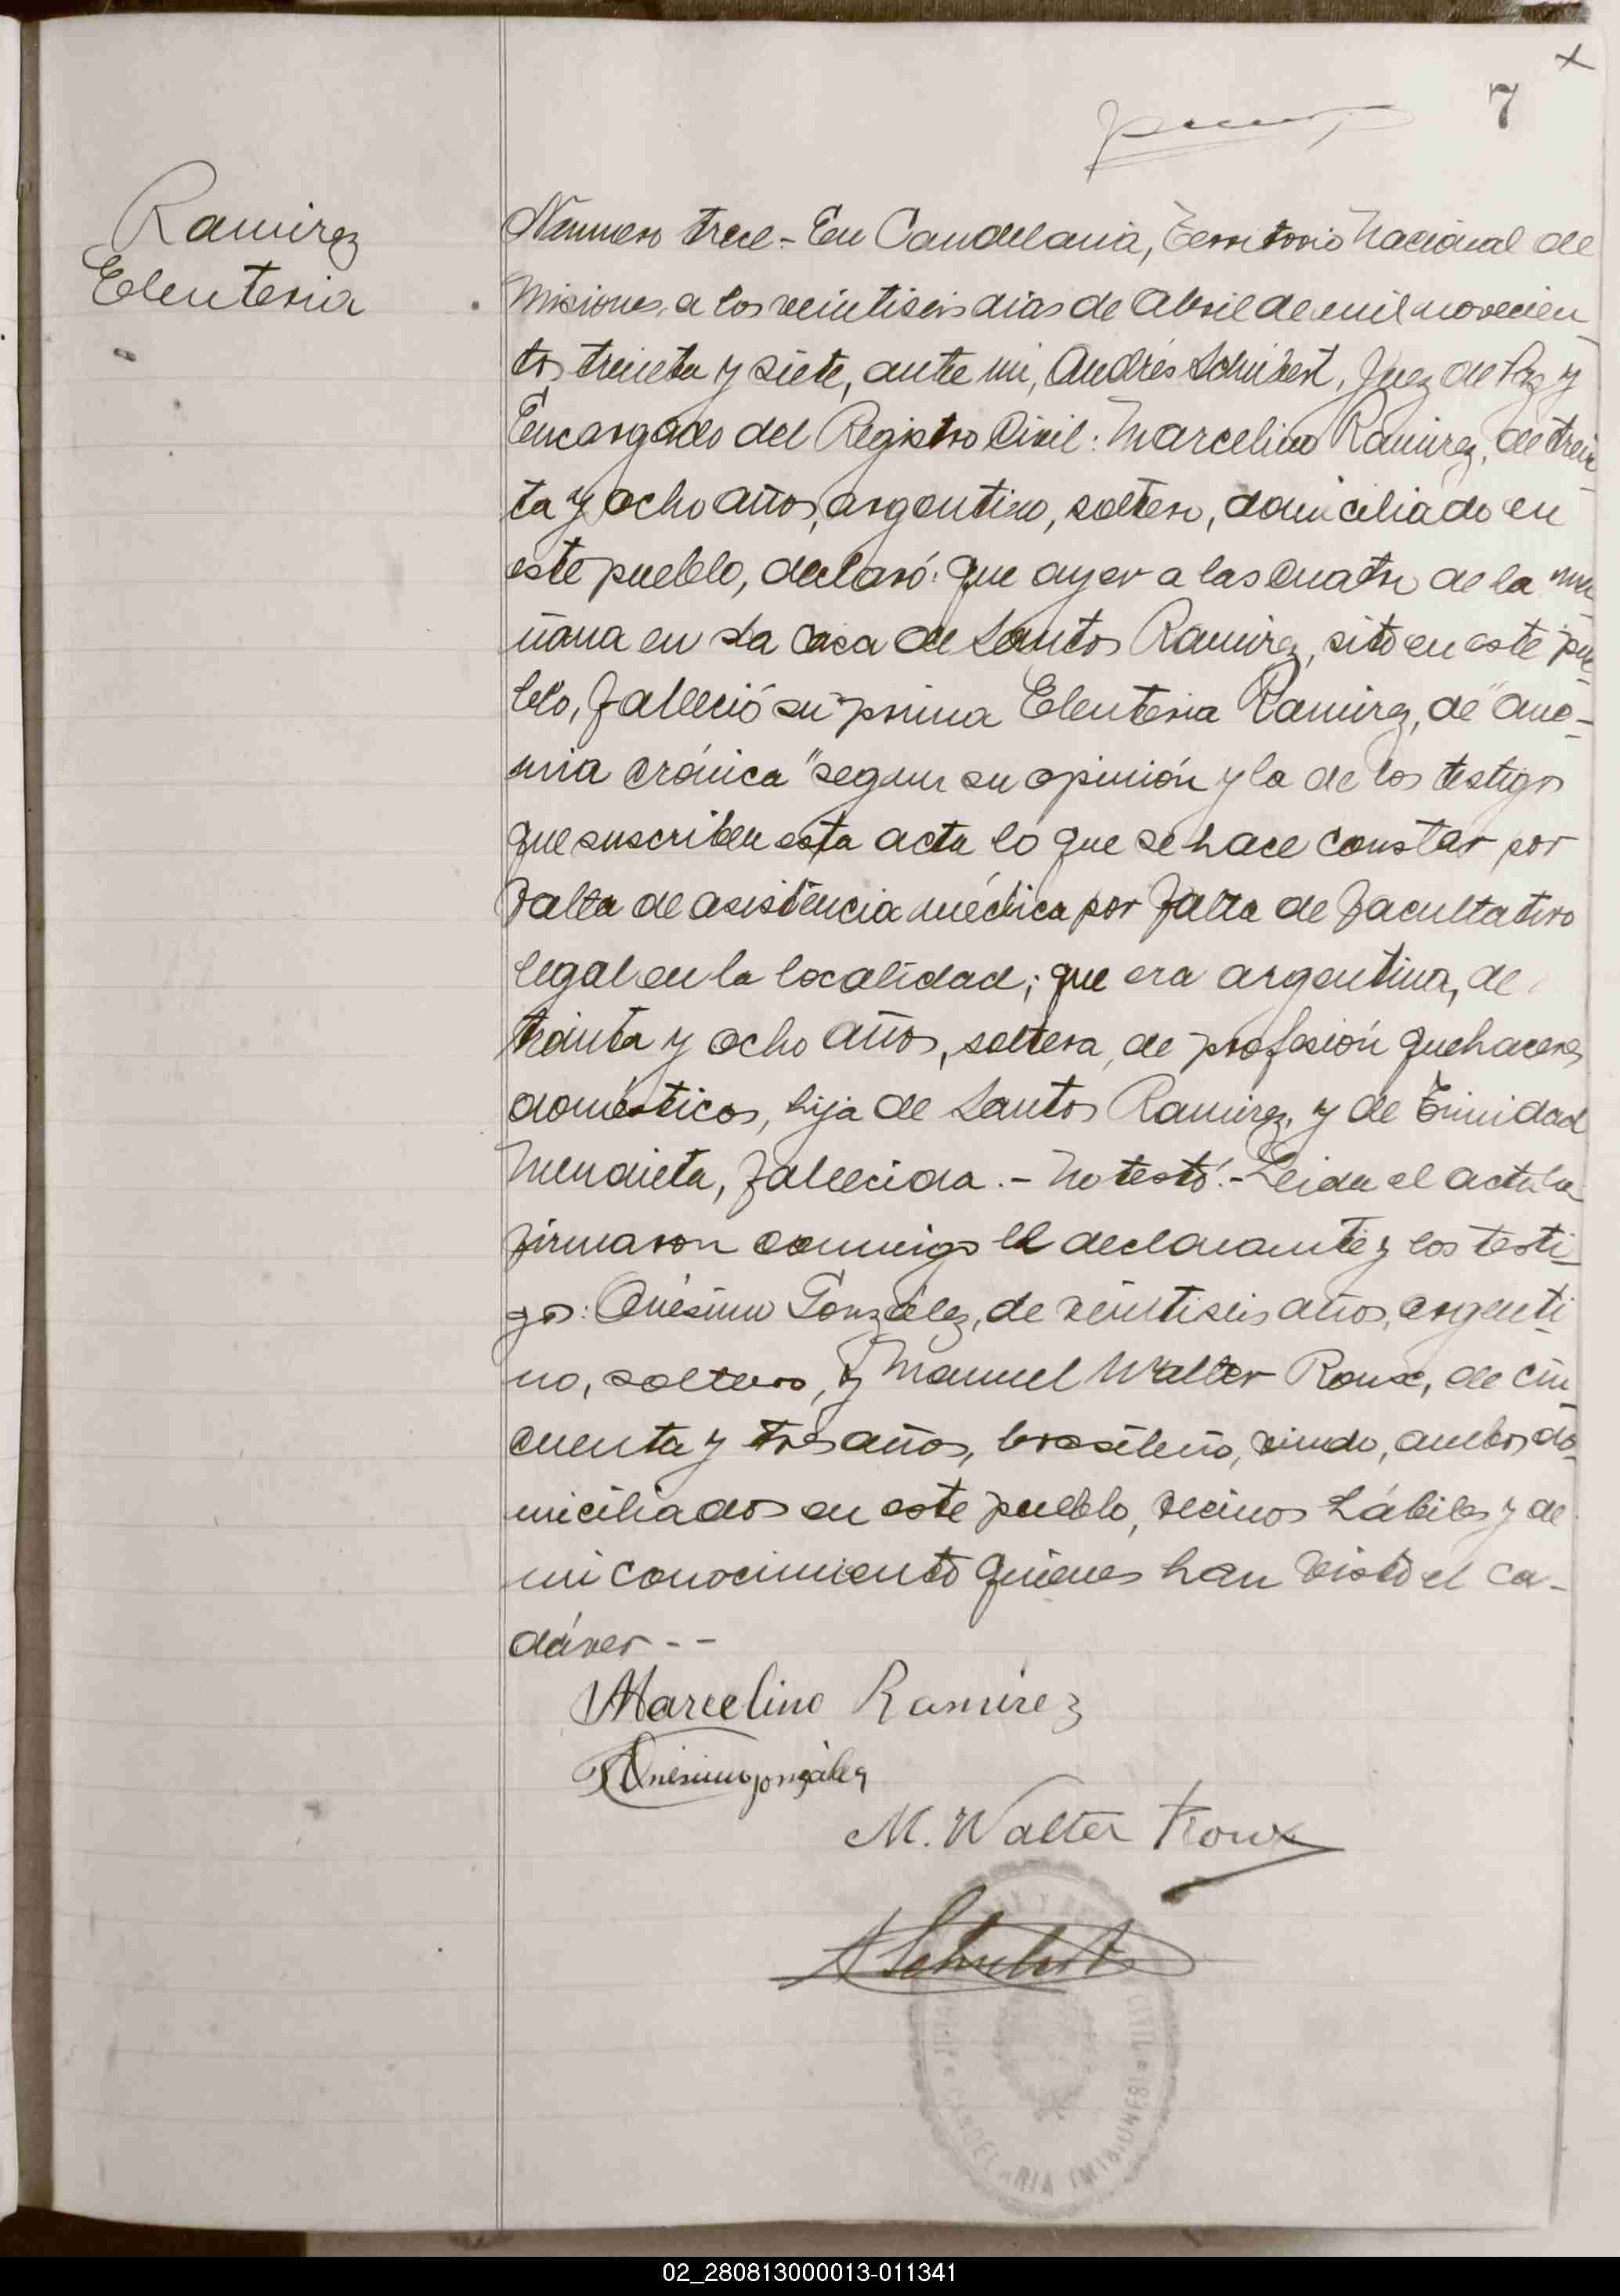 7
Ramirez
Eleuteria
Número trece - En Candelaria, Territorio Nacional de
Misiones, a los veintiseis dias de Abril de mil novecien
tos treinta y siete, ante mi, Andrés Schubert, Juez de Paz y
Encargado del Registro Civil: Marcelino Ramirez, de trein
ta y ocho años, argentino, soltero, domiciliado en
este pueblo, declaró: que ayer a las cuatro de la ma
ñana en la casa de Santos Ramirez, sito en este pue-
blo, falleció su prima Eleuteria Ramirez, de "ane-
mia crónica" segun su opinión y la de los testigos
que suscriben esta acta lo que se hace constar por
falta de asistencia médica por falta de facultativo
legal en la localidad; que era argentina, de
treinta y ocho años, soltera, de profesión quehaceres
domésticos, hija de Santos Ramirez, y de Trinidad
Mendieta, fallecida. - No testó. - Leida el acta la
firmaron conmigo el declarante y los testi-
gos: Onésimo González, de veintiseis años, argenti-
no, soltero, y Manuel Walter Roux, de cin
cuenta y tres años, brasileño, viudo, ambos do-
miciliados en este pueblo, vecinos hábiles y de
mi conocimiento quienes han visto el ca-
dáver - -
Marcelino Ramírez
Onésimo gonzález
M. Walter Roux
A Schubert
CIVIL
CANDELARIA (MISIONES)
02_280813000013-011341